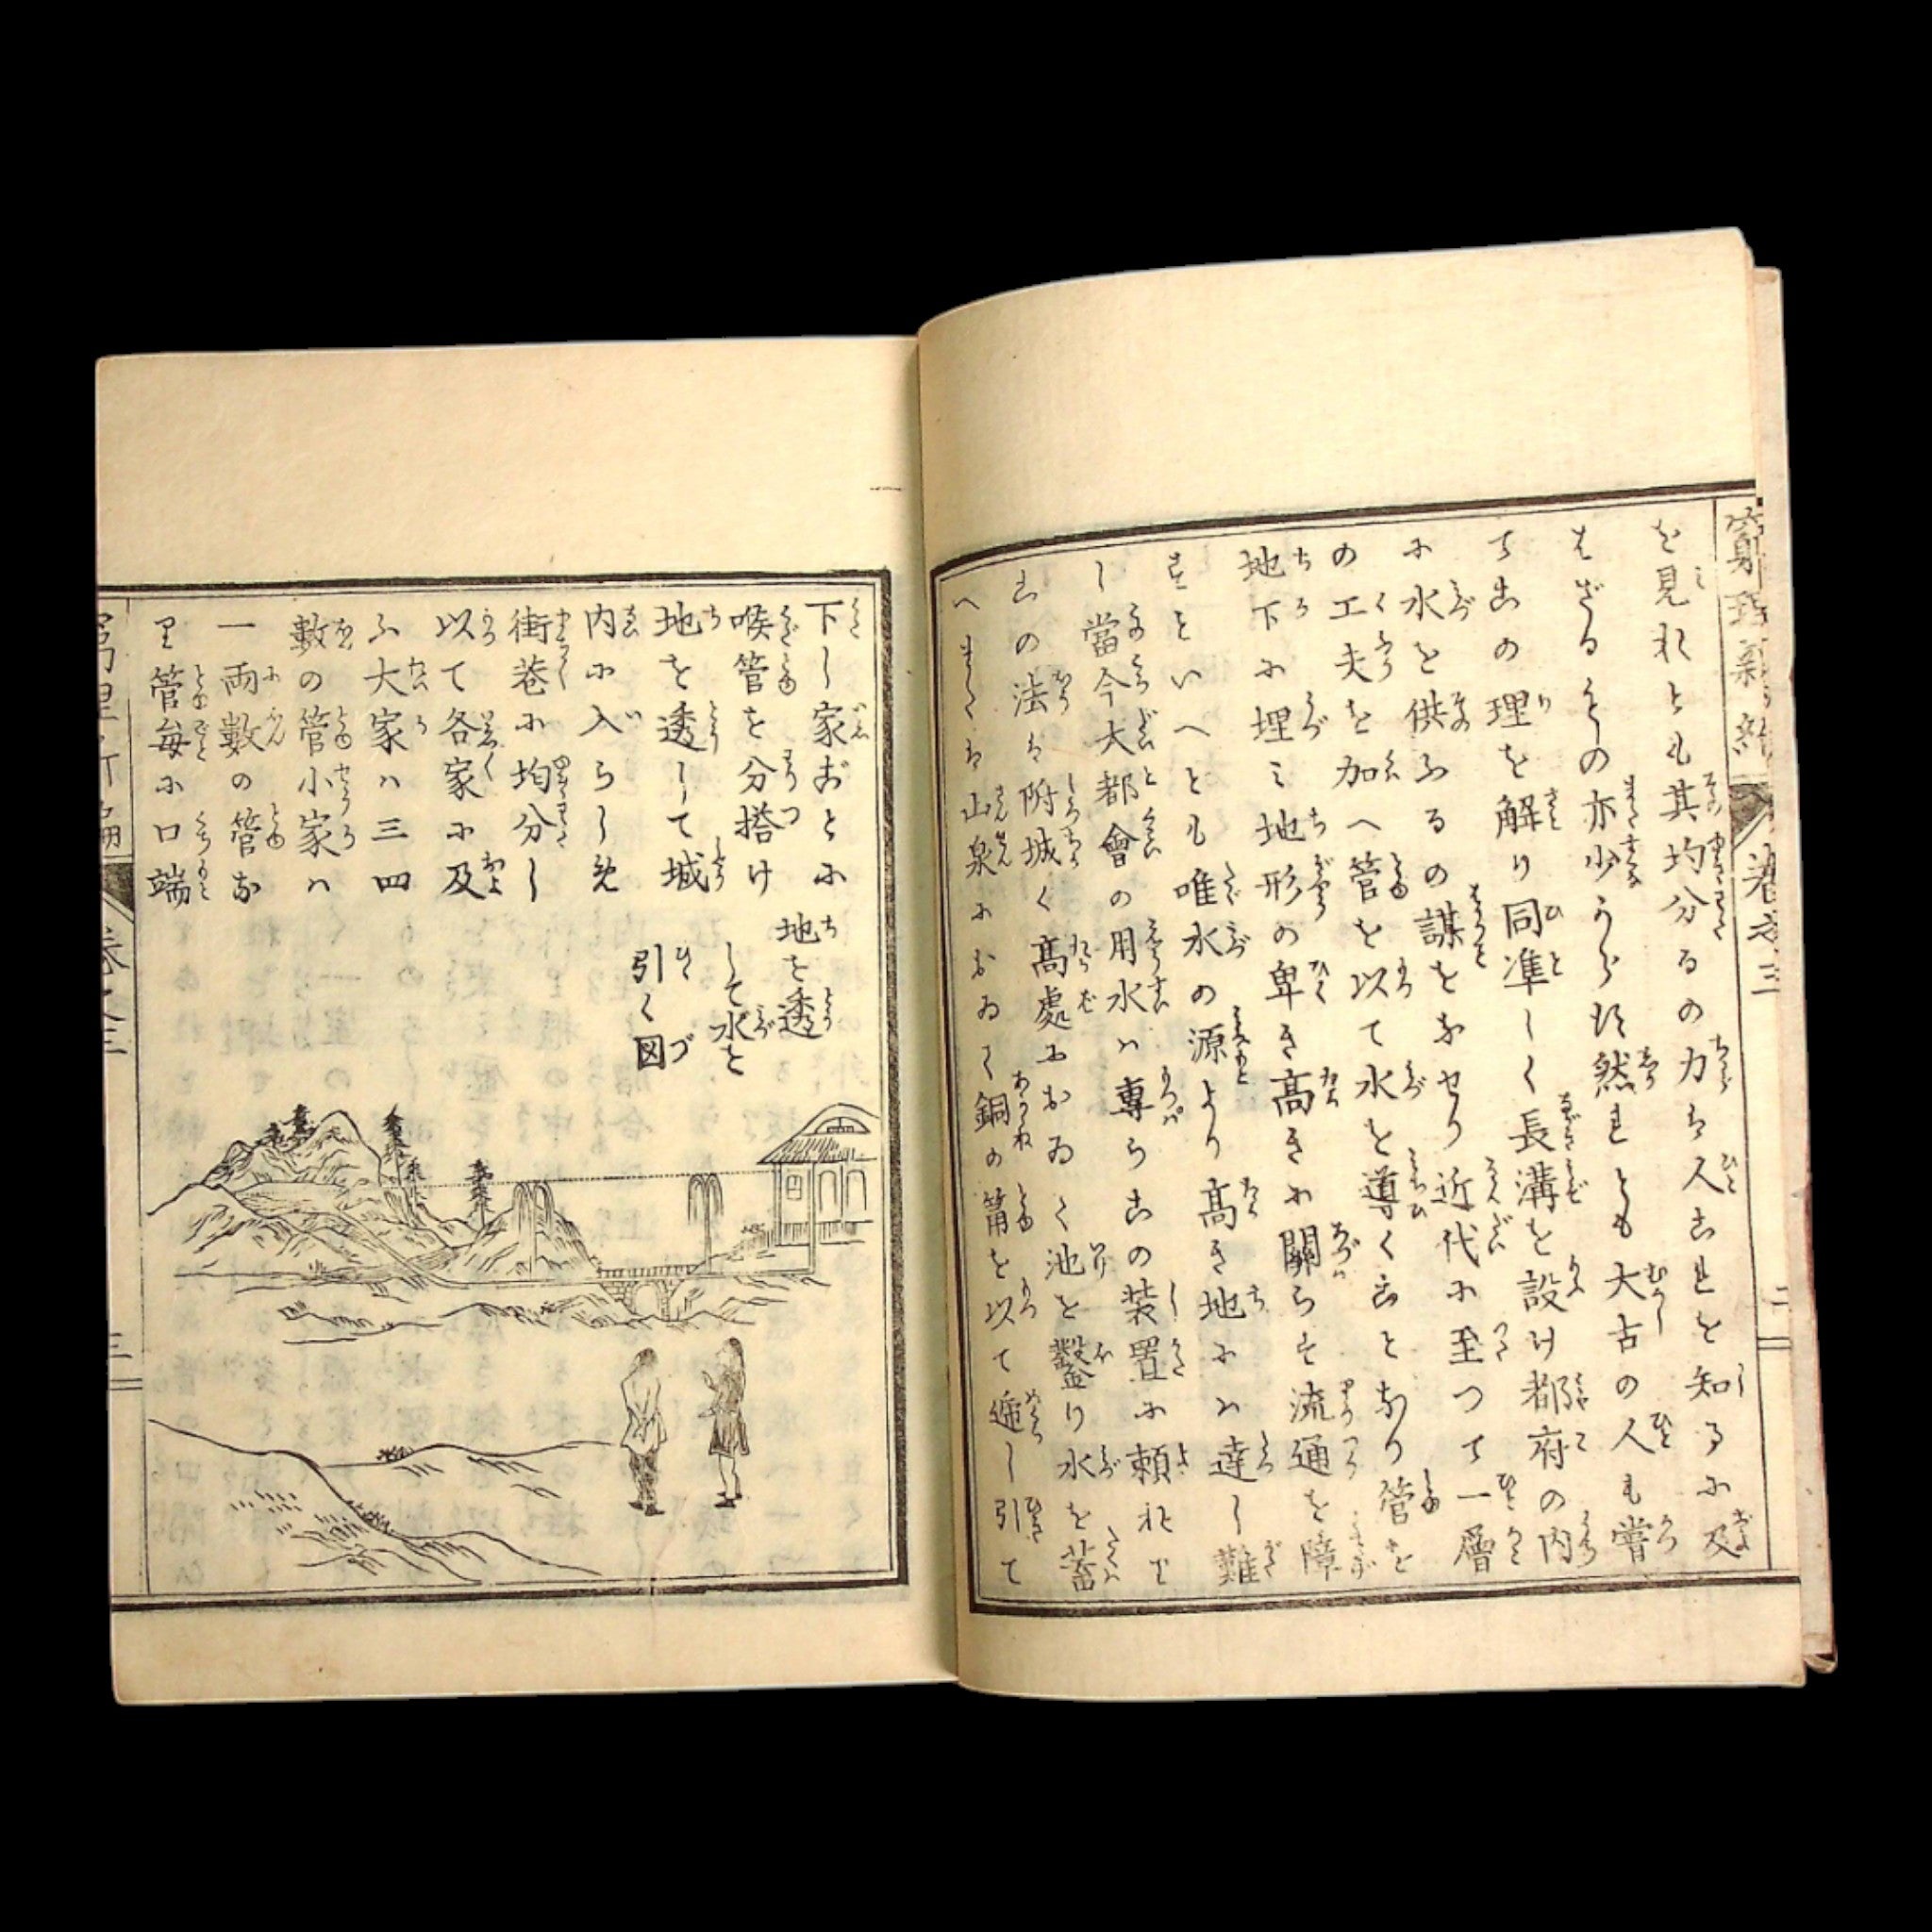 窮理新編 卷之三 二
を見れとも其均分るの力は人これを知るに及
はざるその亦少からず然れとも大古の人も嘗
てこの理を解り同準しく長溝を設け都府の内
に水を供ふるの謀をなせり近代に至つて一層
の工夫を加へ管を以て水を導くことなり管を
地下に埋み地形の卑き高きに關らず流通を障
ずといへとも唯水の源より高き地にハ達し難
し當今大都會の用水ハ專らこの装置に頼れど
この法は附城く高處におゐく池を鑿り水を蓄
へまたは山泉におゐて銅の筩を以て遞し引て
下し家ごとに
喉管を分搭け
地を透して城
内に入らしめ
街巷に均分し
以て各家に及
ふ大家ハ三四
數の管小家ハ
一兩數の管な
り管毎に口端
地を透
して水を
引く図
卷之三
三